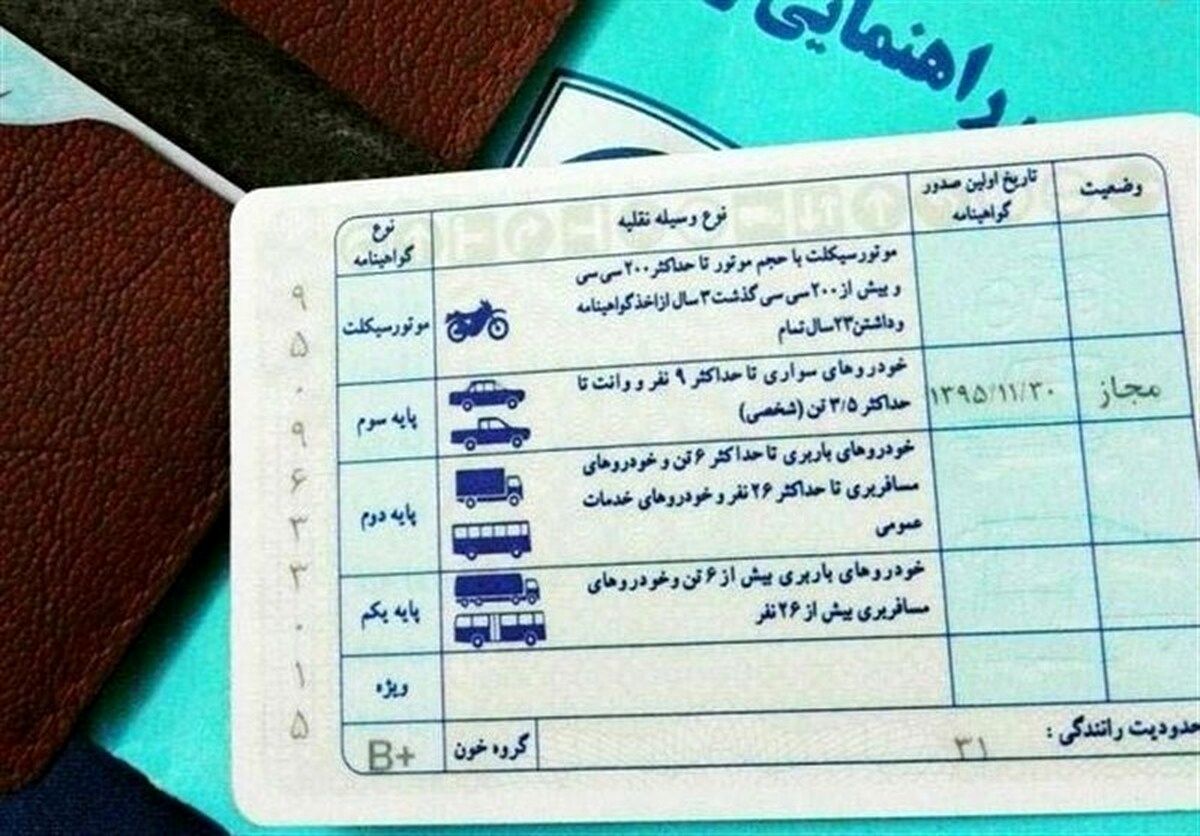 راهنمایی
وضعیت
تاریخ اولین صدور
گواهینامه
نوع وسیله نقلیه
نوع
گواهینامه
موتورسیکلت با حجم موتور تا حداکثر ۲۰۰ سی سی
و بیش از ۲۰۰ سی سی گذشت ۳ سال از اخذ گواهینامه
و داشتن ۲۳ سال تمام
موتورسیکلت
مجاز
۱۳۹۵/۱۱/۳۰
خودروهای سواری تا حداکثر ۹ نفر و وانت تا
حداکثر ۳/۵ تن (شخصی)
پایه سوم
خودروهای باربری تا حداکثر ۶ تن و خودروهای
مسافربری تا حداکثر ۲۶ نفر و خودروهای خدمات
عمومی
پایه دوم
خودروهای باربری بیش از ۶ تن وخودروهای
مسافربری بیش از ۲۶ نفر
پایه یکم
ویژه
حدودیت رانندگی :
۳۱
گروه خون
B+
۹
۵
۰
۹
۶
۳
۳
۰
۱
۵